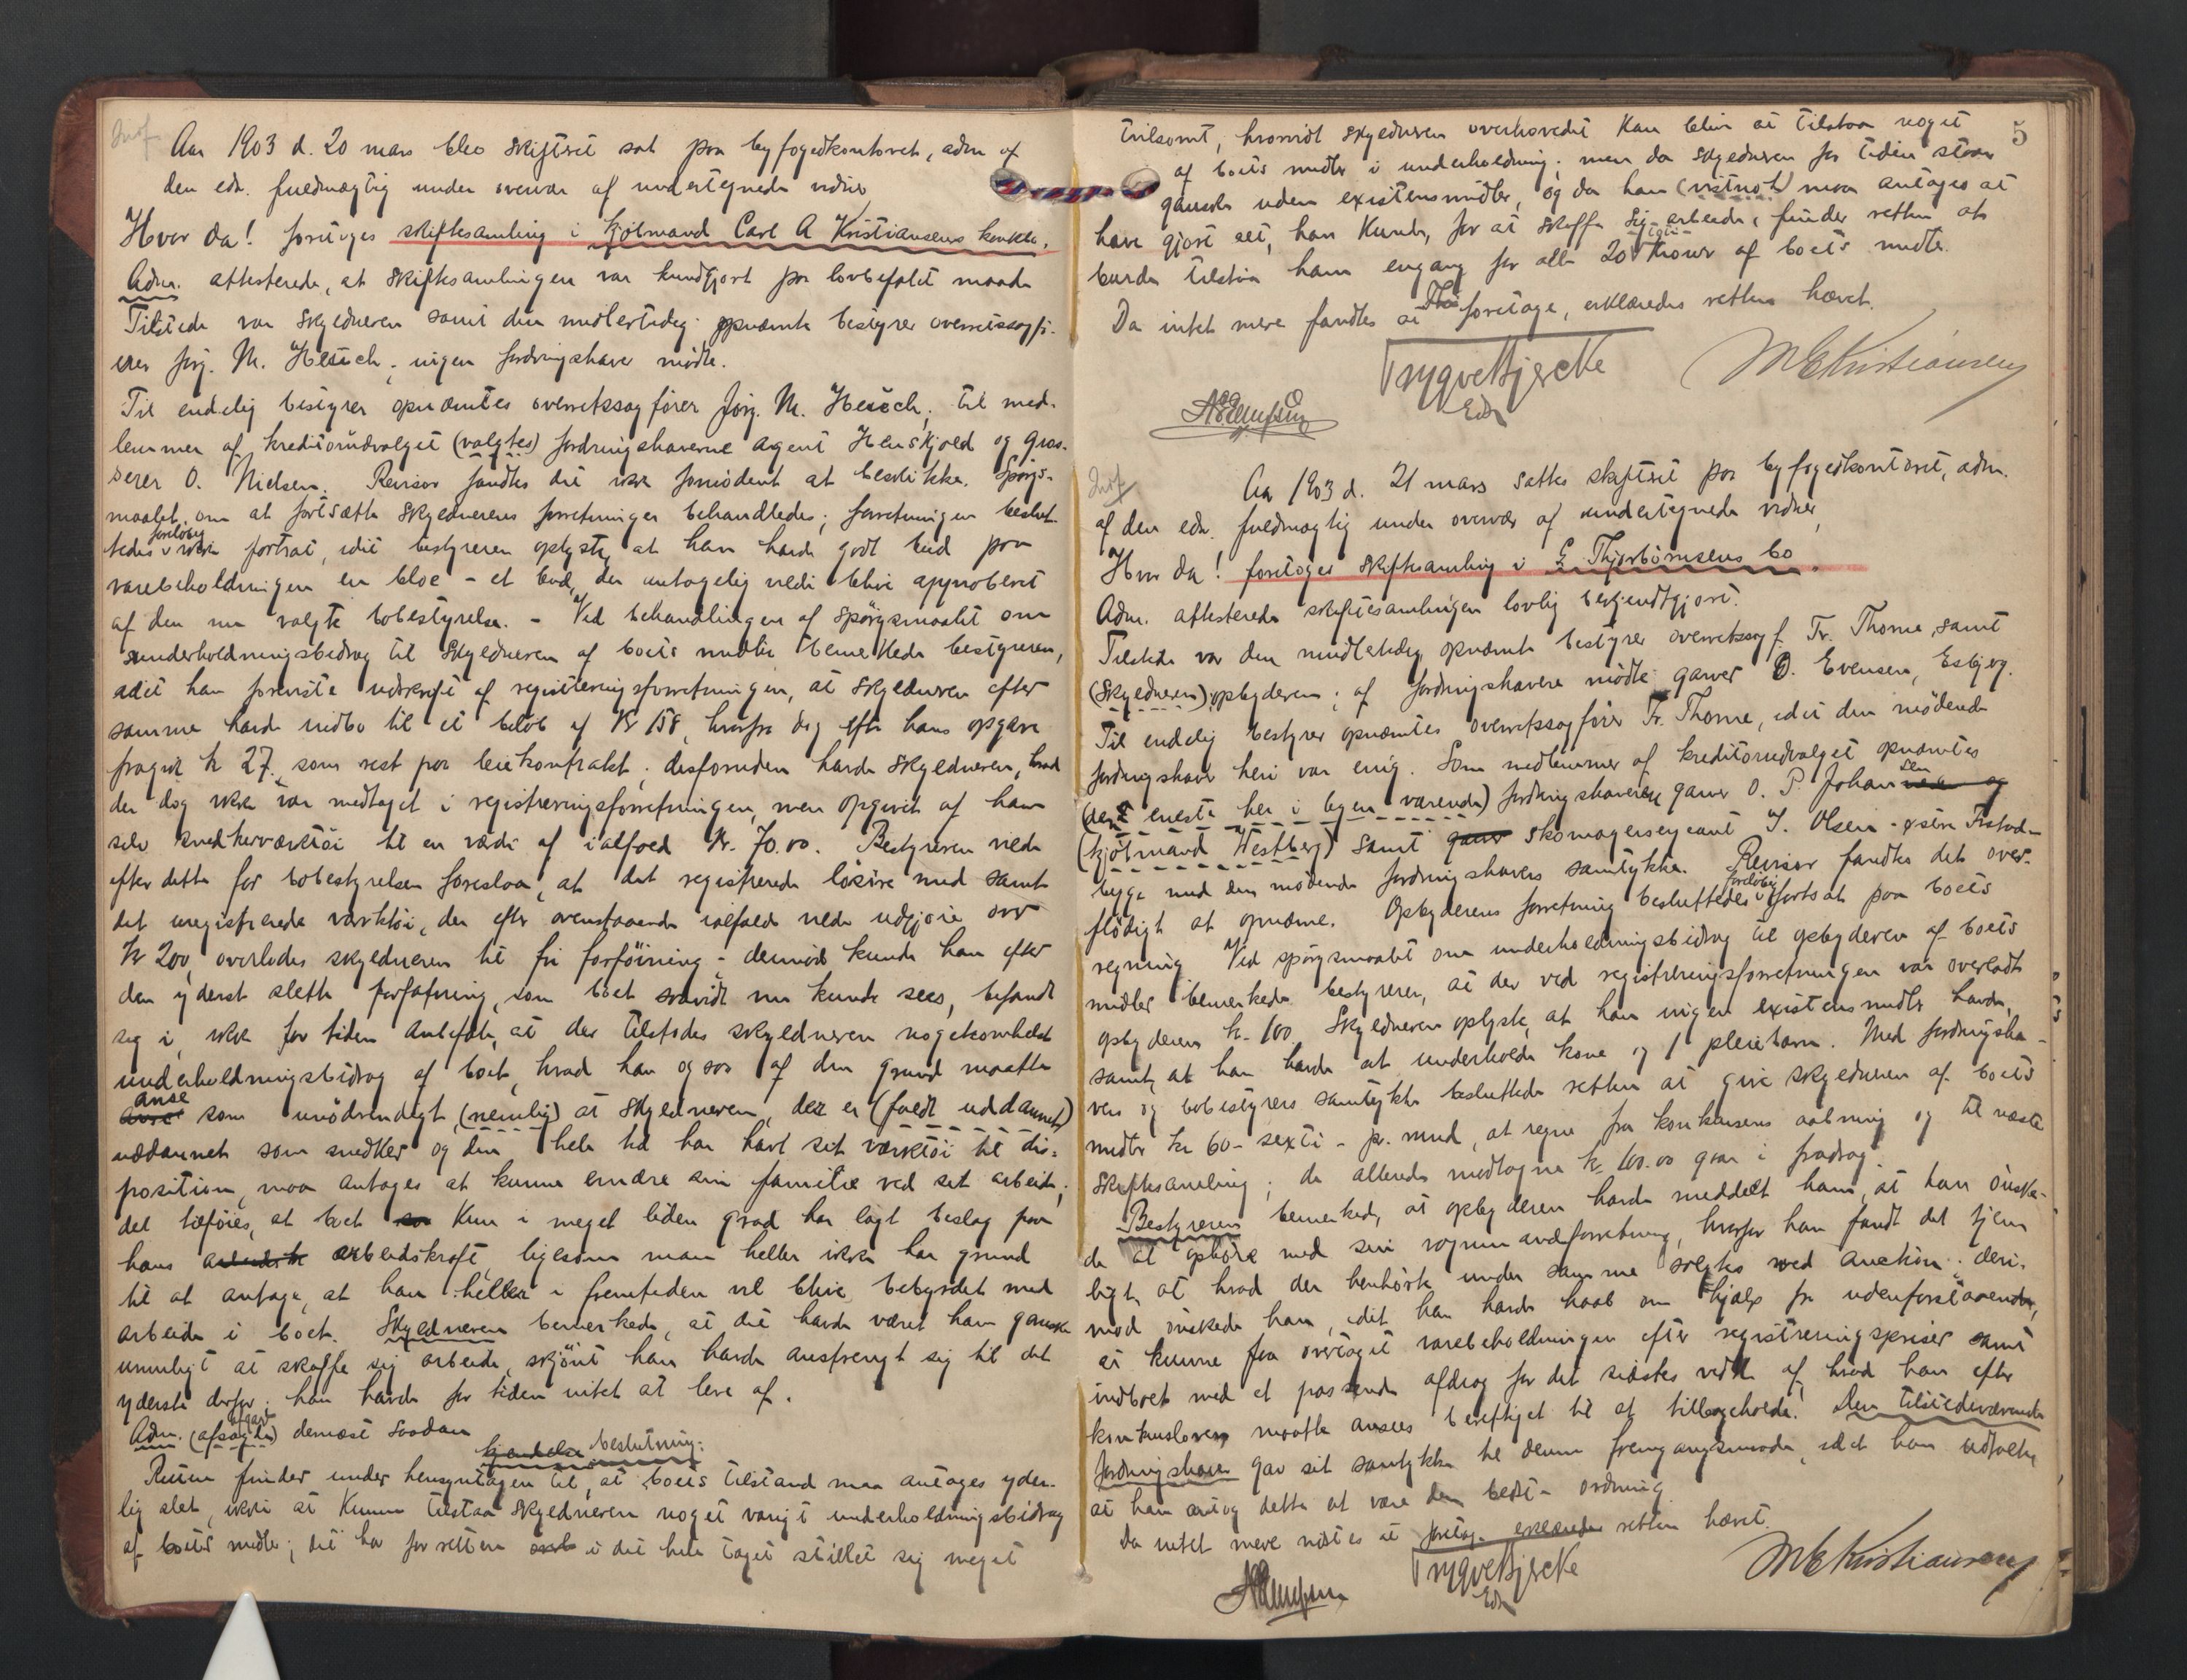 Aar 1903 d. 20 mars blev skifteret sat paa byfogedkontoret, adm af
den edv. fuldmægtig under overvær af undertegnede vidner
Hvor da! foretoges skiftesamling i kjøbmand Carl A Kristiansens konkbo.
Adm. attesterede, at skiftesamlingen var kundgjort paa lovbefalet maade
Tilstede var skyldneren samt den midlertidig opnævnte bestyrer overretssagfø-
rer Jörg. M. Heüch; ingen fordringshaver mödte.
Til endelig bestyrer opnævntes overretssagfører Jörg. M. Heüch; til med-
lemmer af kreditorudvalget (valgtes) fordringshaverne agent Henskjold og gros-
serer O. Nielsen. Revisor fandtes det ikke fornödent at beskikke. Spörgs-
maalet om at fortsætte skyldnerens forretninger behandledes; forretningen beslut-
foreløbig
tedes ikke fortsat, idet bestyreren oplyste, at han havde godt bud paa
varebeholdningen en bloc - et bud, der antagelig vilde blive approberet
af den nu valgte bobestyrelse. - Ved behandlingen af spörgsmaalet om
underholdningsbidrag til skyldneren af boets midler bemerkede bestyreren,
idet han foreviste udskrift af registreringsforretningen, at skyldneren efter
samme havde indbo til et belöb af Kr 158, hvorfra dog efter hans opgave
fragik kr 27. som rest paa leiekontrakt; desforuden havde skyldneren, hvad
der dog ikke var medtaget i registreringsforretningen, men opgivet af ham
selv snedkerværktöi til en værdi af ialfald kr. 70.00. Bestyreren vilde
efter dette for bobestyrelsen foreslaa, at det registrerede lösöre med samt
det uregistrerede værktöi, der efter ovenstaaende ialfald vilde udgjöre over
kr 200, overlodes skyldneren til fri forföining; derimod kunde han efter
den yderst slette forfatning, som boet saavidt nu kunde sees, befandt
sig i, ikke for tiden anbefale, at der tilstodes skyldneren nogetsomhelst
underholdningsbidrag af boet, hvad han ogsaa af den grund maatte
anse
som unödvendigt, (nemlig) at skyldneren, der er (fuldt uddannet)
uddannet som snedker og den hele tid har havt sit værktöi til dis-
position, maa antages at kunne ernære sin familie ved sit arbeide;
det tilföies, at boet kun i meget liden grad har lagt beslag paa
hans arbeidskraft, ligesom man heller ikke har grund
til at antage, at han heller i fremtiden vil blive bebyrdet med
arbeide i boet. Skyldneren bemerkede, at det havde været ham ganske
umuligt at skaffe sig arbeide, skjönt han havde anstrengt sig til det
yderste derfor; han havde for tiden intet at leve af.
afgav
Adm. (afsagde) dernæst saadan
kjendelse beslutning:
Retten finder under hensyntagen til, at boets tilstand maa antages yder-
lig slet, ikke at kunne tilstaa skyldneren noget varigt underholdningsbidrag
af boets midler; det har for retten i det hele taget stillet sig meget
5
tvilsomt, hvorvidt skyldneren overhovedet kan blive at tilstaa noget
af boets midler i underholdning; men da skyldneren for tiden staar
ganske uden existensmidler, og da han (vistnok) maa antages at
have gjort alt, han kunde, for at skaffe sig arbeide, finder retten at
burde tilstaa ham engang for alle 20 kroner af boets midler.
Da intet mere fandtes at foretage, erklæredes retten hævet.
Trygve Bjercke
Edv
M E Kristiansen
Aar 1903 d. 21 mars sattes skifteret paa byfogedkontoret, adm.
af den edv. fuldmægtig under overvær af undertegnede vidner,
Hvor da! foretoges skiftesamling i G. Thjorbörnsens bo.
Adm. attesterede skiftesamlingen lovlig bekjendtgjort.
Tilstede var den midlertidig opnævnte bestyrer overretssagf. Fr. Thorne, samt
(skyldneren) opbyderen; af fordringshavere mödte garver O. Evensen, Esbjerg.
Til endelig bestyrer opnævntes overretssagfører Fr. Thorne, idet den mödende
fordringshaver heri var enig. Som medlemmer af kreditorudvalget opnævntes
(den eneste her i byen værende) fordringshaveren garver O. P. Johansen og
(kjöbmand Westberg) samt garver skomagersergeant J. Olsen
med den mödende fordringshavers samtykke. Revisor fandtes det over-
foreløbig
flödigt at opnævne. Opbyderens forretning besluttedes fortsat paa boets
regning. Ved spörgsmaalet om underholdningsbidrag til opbyderen af boets
midler bemerkede bestyreren, at der ved registreringsforretningen var overladt
opbyderen kr. 100. Skyldneren oplyste, at han ingen existensmidler havde,
samt, at han havde at underholde kone og 1 pleiebarn. Med fordringsha-
vers og bobestyrers samtykke besluttede retten at give skyldneren af boets
midler kr 60 - sexti - pr. mnd, at regne fra konkursens aabning og til næste
skiftesamling; de allerede modtagne kr 100.00 gaar i fradrag.
Bestyreren bemerkede, at opbyderen havde meddelt ham, at han önske-
de at ophöre med sin forretning, hvorfor han fandt det tjen-
ligt, at hvad der henhörte under samme solgtes ved auktion; deri-
mod önskede han, idet han havde haab om hjælp fra udenforstaaende,
at kunne faa overtaget varebeholdningen efter registreringspriser samt
indboet med et passende afdrag for det sidstes vedk. af, hvad han efter
konkursloven maatte ansees berettiget til at tilbageholde. Den tilstedeværende
fordringshaver gav sit samtykke til denne fremgangsmaade, idet han udtalte
at han antog dette at være den bedste ordning.
Da intet mere vistes at foretage erklæredes retten hævet.
Trygve Bjercke
Edv
M E Kristiansen